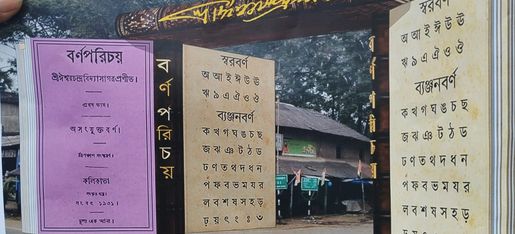 বর্ণপরিচয়
শ্রীঈশ্বরচন্দ্রবিদ্যাসাগরপ্রণীত।
প্রথম ভাগ।
অসংযুক্তবর্ণ।
কলিকাতা
মূল্য এক আনা।
বর্ণপরিচয়
স্বরবর্ণ
অ আ ই ঈ উ ঊ
ঋ ৯ এ ঐ ও ঔ
ব্যঞ্জনবর্ণ
ক খ গ ঘ ঙ চ ছ
জ ঝ ঞ ট ঠ ড
ঢ ণ ত থ দ ধ ন
প ফ ব ভ ম য র
ল ব শ ষ স হ ড়
ঢ় য় ৎ ং ঃ ঁ
বর্ণপরিচয়
স্বরবর্ণ
অ আ ই ঈ উ ঊ
ঋ ৯ এ ঐ ও ঔ
ব্যঞ্জনবর্ণ
ক খ গ ঘ ঙ চ ছ
জ ঝ ঞ ট ঠ ড
ঢ ণ ত থ দ ধ ন
প ফ ব ভ ম য র
ল ব শ ষ স হ ড়